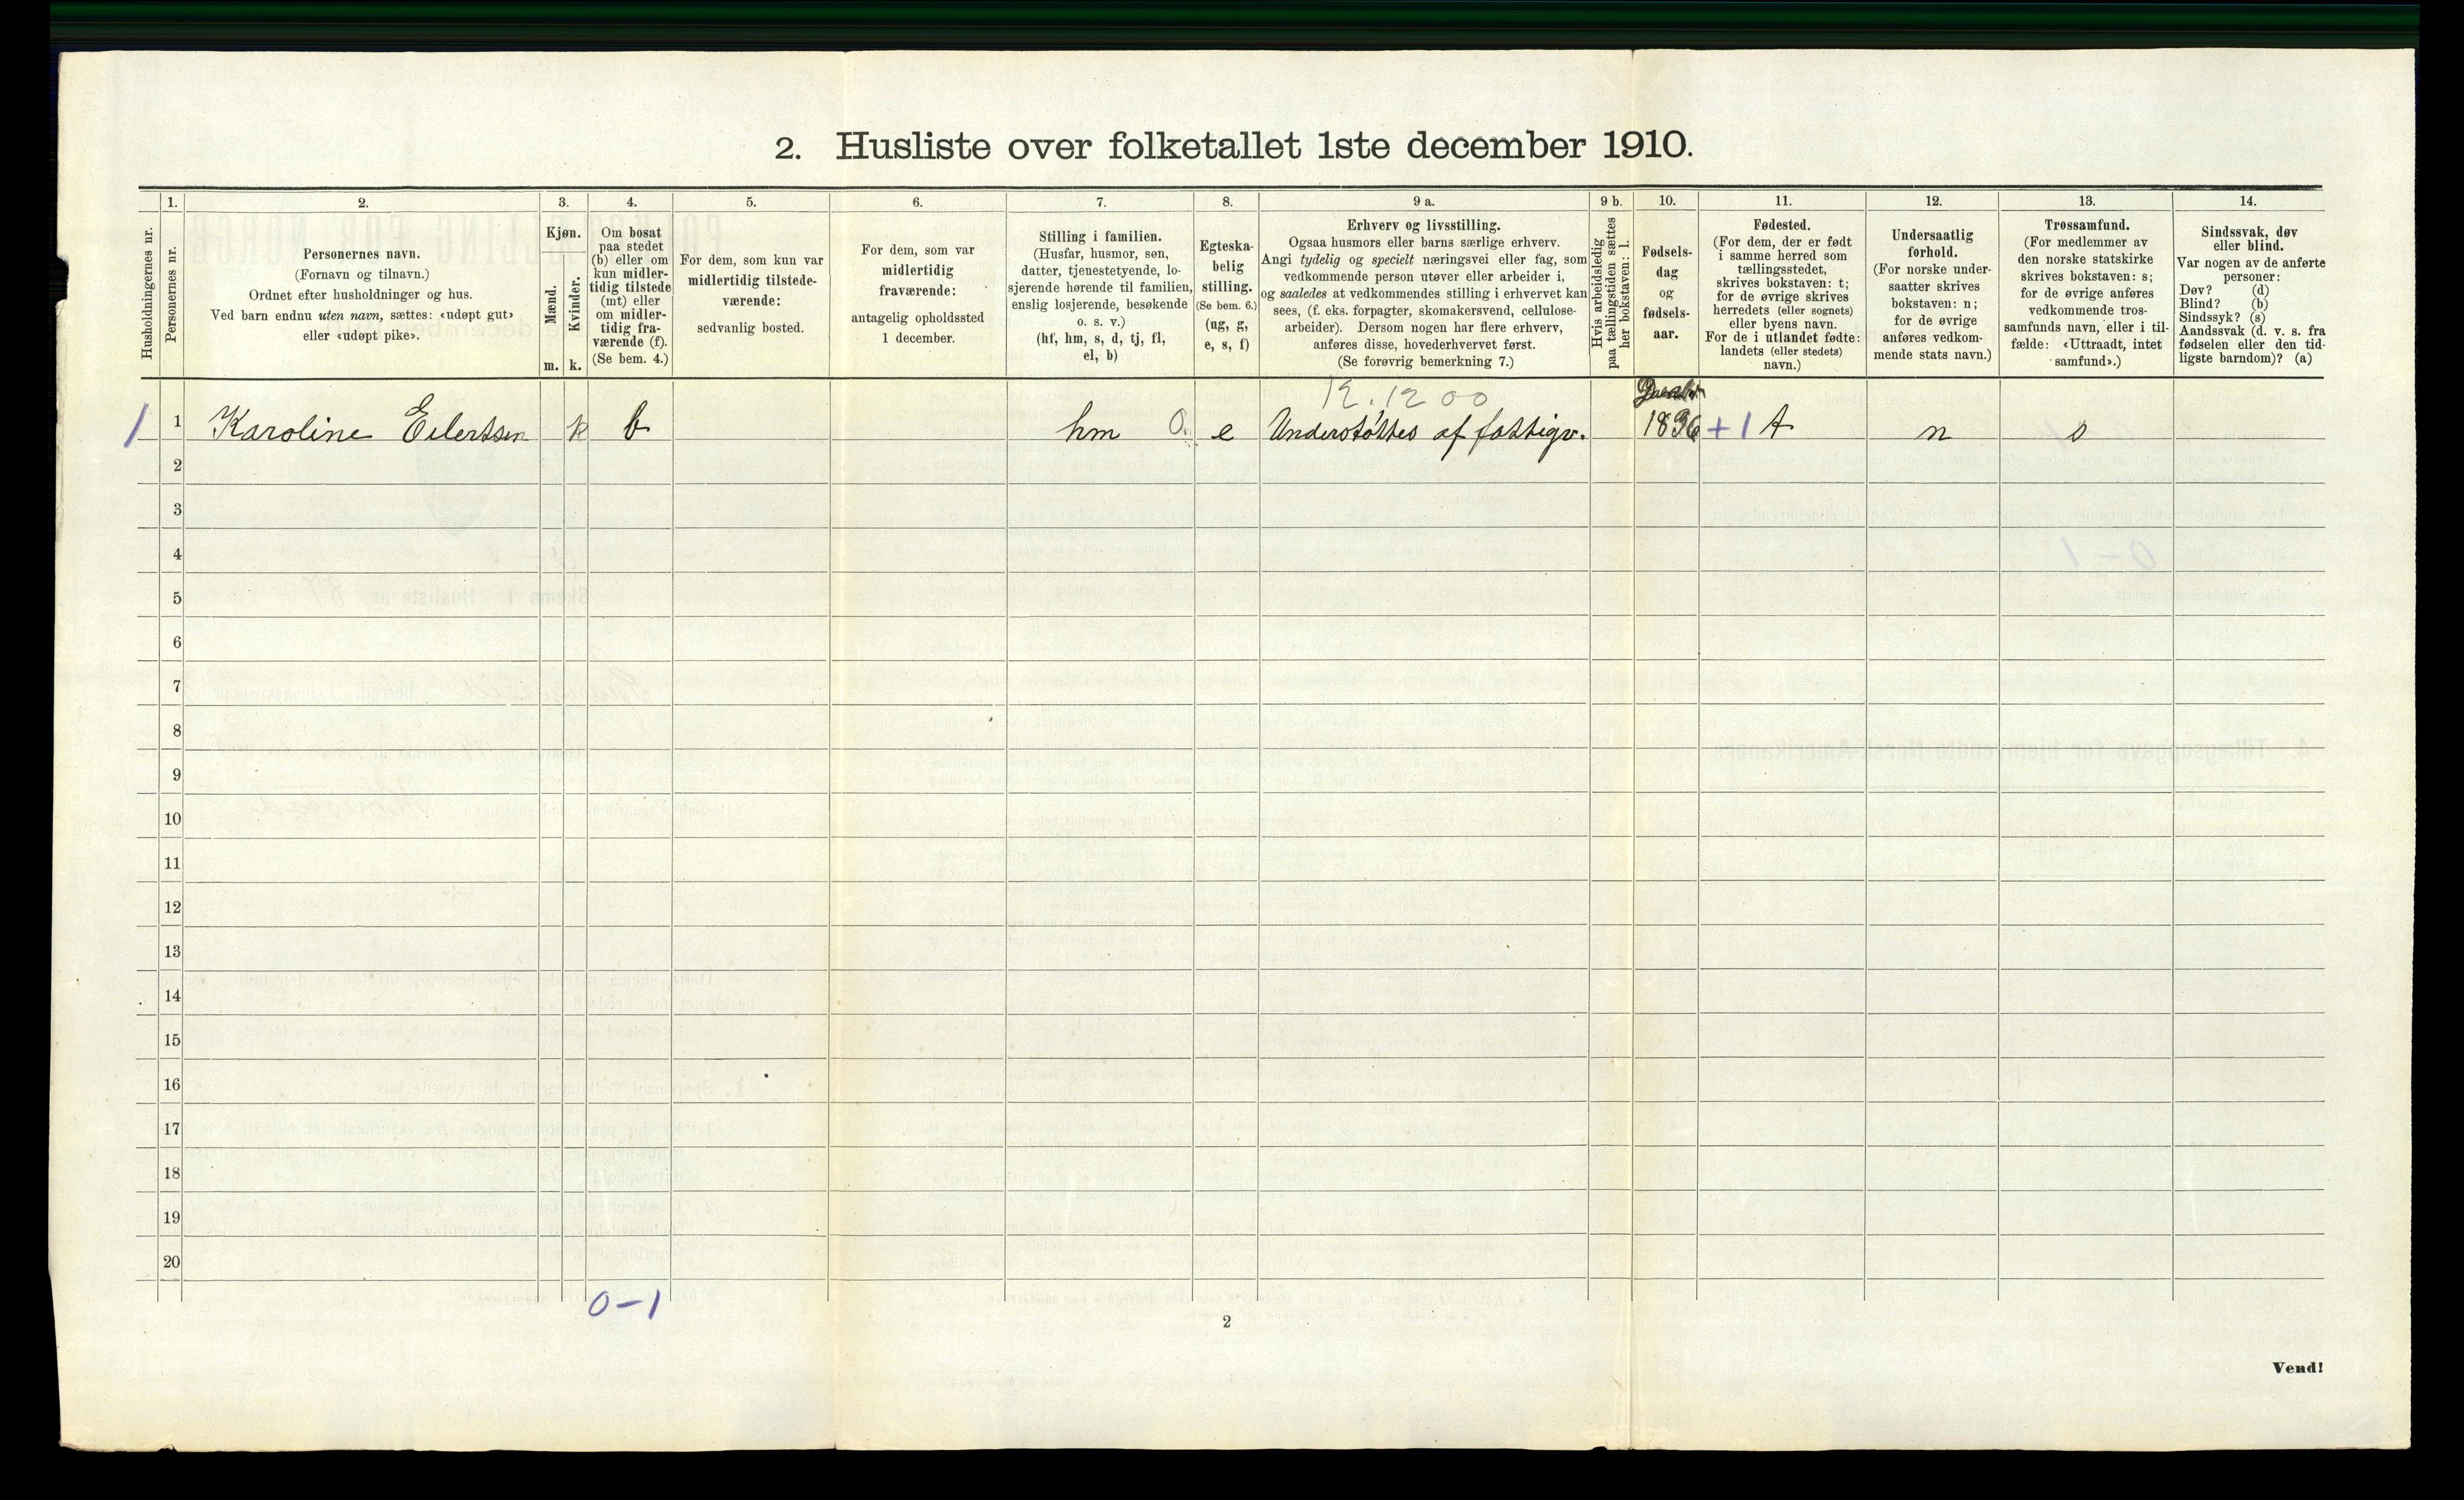 2. Husliste over folketallet 1ste december 1910.
1. 2. 3. 4. 5. 6. 7. 8. 9 a. 9 b. 10. 11. 12. 13. 14.
Husholdningernes nr.
Personernes nr.
Personernes navn.
(Fornavn og tilnavn.)
Ordnet efter husholdninger og hus.
Ved barn endnu uten navn, sættes: «udøpt gut»
eller «udøpt pike».
Kjøn.
Mænd.
Kvinder.
m. k.
Om bosat
paa stedet
(b) eller om
kun midler-
tidig tilstede
(mt) eller
om midler-
tidig fra-
værende (f).
(Se bem. 4.)
For dem, som kun var
midlertidig tilstede-
værende:
sedvanlig bosted.
For dem, som var
midlertidig
fraværende:
antagelig opholdssted
1 december.
Stilling i familien.
(Husfar, husmor, søn,
datter, tjenestetyende, lo-
sjerende hørende til familien,
enslig losjerende, besøkende
o. s. v.)
(hf, hm, s, d, tj, fl,
el, b)
Egteska-
belig
stilling.
(Se bem. 6.)
(ug, g,
e, s, f)
Erhverv og livsstilling.
Ogsaa husmors eller barns særlige erhverv.
Angi tydelig og specielt næringsvei eller fag, som
vedkommende person utøver eller arbeider i,
og saaledes at vedkommendes stilling i erhvervet kan
sees, (f. eks. forpagter, skomakersvend, cellulose-
arbeider). Dersom nogen har flere erhverv,
anføres disse, hovederhvervet først.
(Se forøvrig bemerkning 7.)
Hvis arbeidsledig
paa tællingstiden sættes
her bokstaven: l.
Fødsels-
dag
og
fødsels-
aar.
Fødested.
(For dem, der er født
i samme herred som
tællingsstedet,
skrives bokstaven: t;
for de øvrige skrives
herredets (eller sognets)
eller byens navn.
For de i utlandet fødte:
landets (eller stedets)
navn.)
Undersaatlig
forhold.
(For norske under-
saatter skrives
bokstaven: n;
for de øvrige
anføres vedkom-
mende stats navn.)
Trossamfund.
(For medlemmer av
den norske statskirke
skrives bokstaven: s;
for de øvrige anføres
vedkommende tros-
samfunds navn, eller i til-
fælde: «Uttraadt, intet
samfund».)
Sindssvak, døv
eller blind.
Var nogen av de anførte
personer:
Døv? (d)
Blind? (b)
Sindssyk? (s)
Aandssvak (d. v. s. fra
fødselen eller den tid-
ligste barndom)? (a)
12.1200
1 1 Karoline Eilertsen k b hm 0. e Understøttes af fattigv. 1836 +1 t n s
2
3
4
5
6
7
8
9
10
11
12
13
14
15
16
17
18
19
20
0-1
2
Vend!